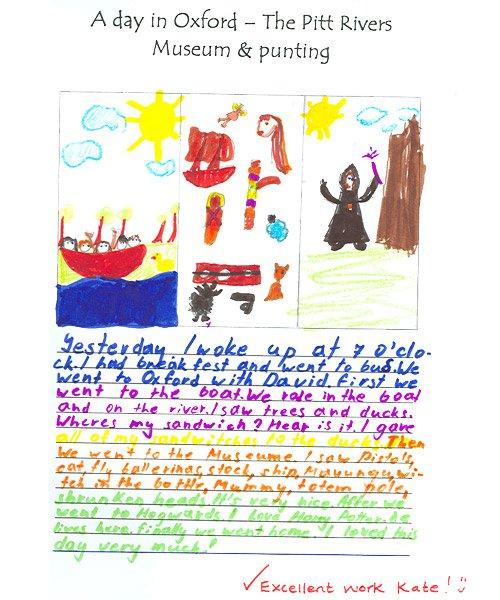 A day in Oxford – The Pitt Rivers
Museum & punting
Yesterday I woke up at 7 o'clo-
ck. I had breakfest and went to bus. We
went to Oxford with David. First we
went to the boat. We rade in the boat
and on the river. I saw trees and ducks.
Wheres my sandwich? Hear is it. I gave
all of my sandwitches to the ducks. Then
we went to the Museume. I saw Pistols,
cat, fly, ballerinas, stock, ship, wi-
tch in the bottle, Mummy, totem pole,
shrunken heads. It's very nice. After we
went to Hogwards. I love Harry Potter. He
lives here. Finally we went home. I loved this
day very much!
✓Excellent work Kate!